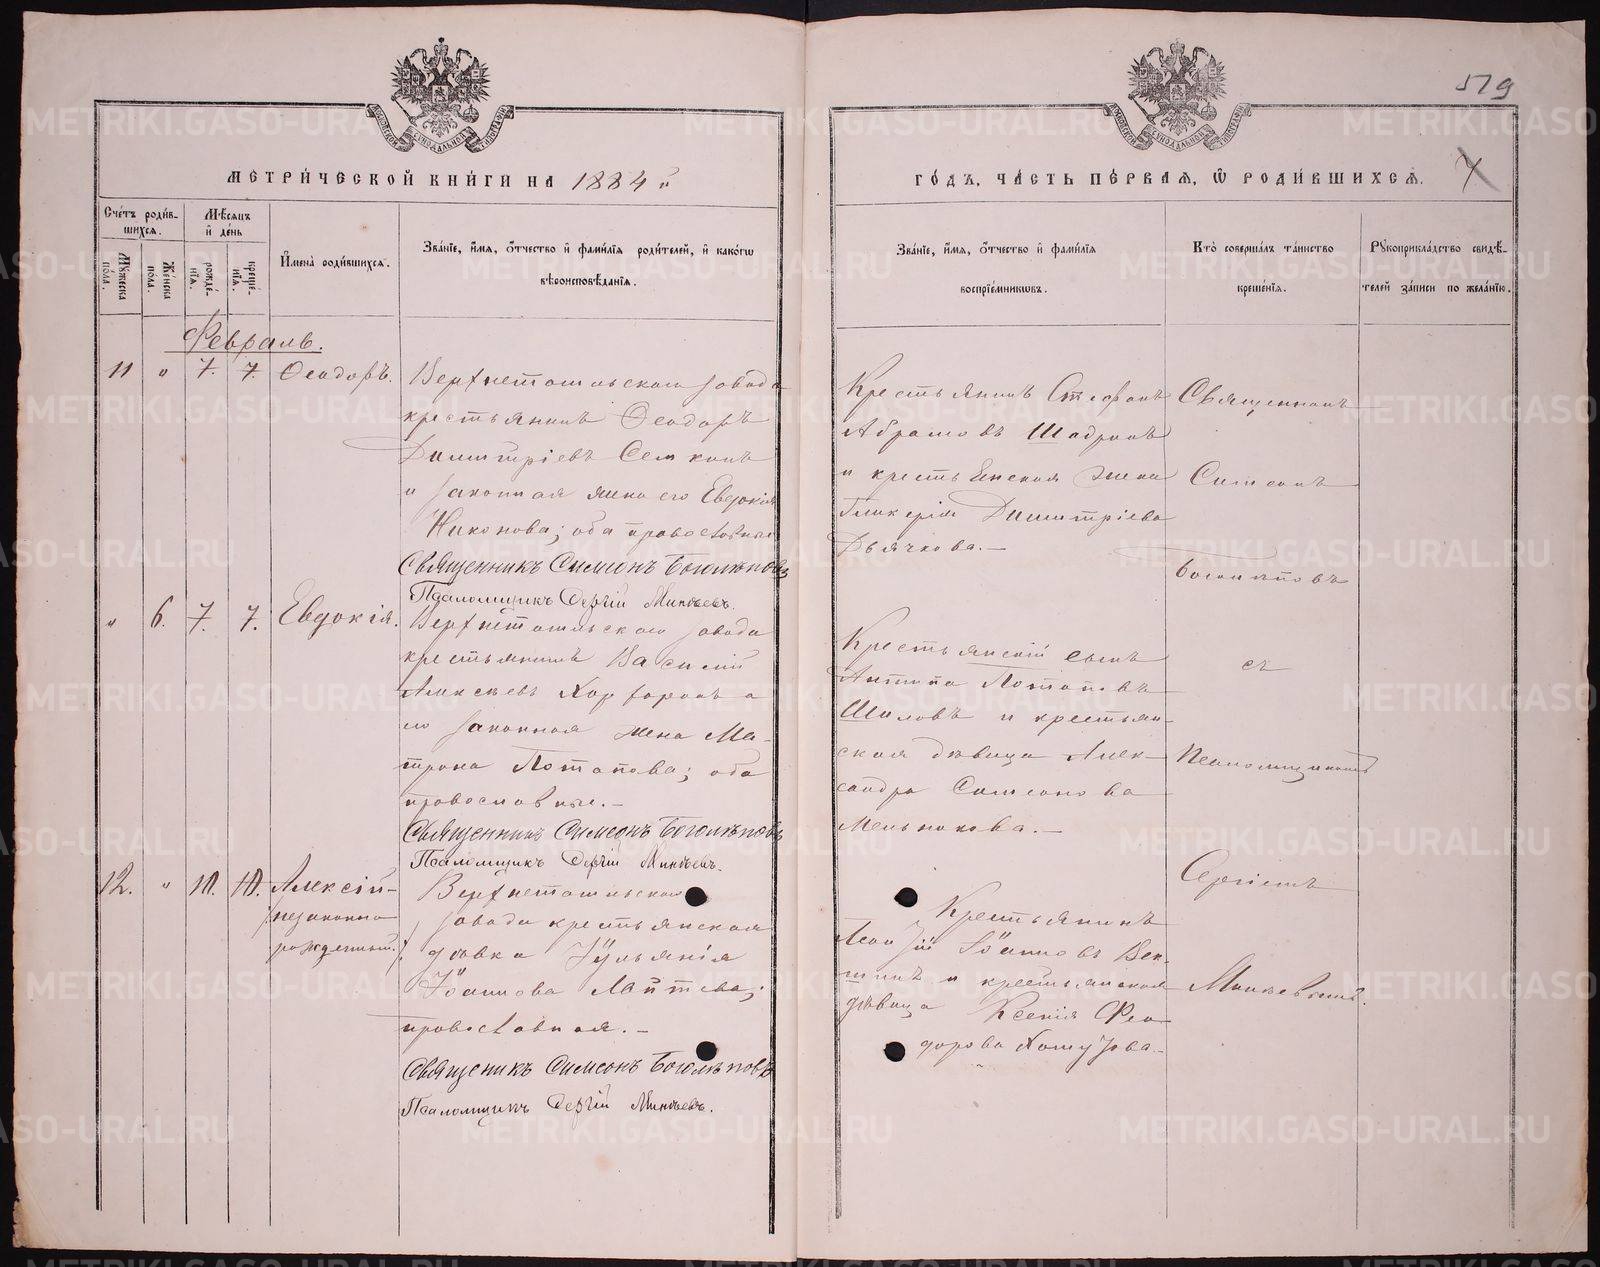 519
МЕТРИ́ЧЕСКОЙ КНИ́ГИ НА 1884 й
ГО́ДЪ, ЧА́СТЬ ПЕ́РВАЯ, Ѡ РОДИ́ВШИХСЯ.
7
Сче́тъ роди́в-
шихся.
Мꙋ́жеска по́ла.
Же́нска по́ла.
Мѣ́сяцъ
и҆ де́нь
рожде́-
нїѧ.
креще́-
нїѧ.
И҆мена̀ роди́вшихся.
Зва́нїе, и҆́мя, ѻ҆́тчество и҆ фами́лїя роди́телей, и҆ како́гѡ
вѣроисповѣ́данїя.
Зва́нїе, и҆́мя, ѻ҆́тчество и҆ фами́лїя
воспрїе́мникѡвъ.
Кто̀ соверша́лъ та́инство
креще́нїя.
Рꙋкоприкла́дство свидѣ́-
телей за́писи по жела́нїю.
Февраль.
11 " 7. 7. Ѳеодоръ.
Верхнетагильскаго завода
крестьянинъ Ѳеодоръ
Димитріевъ
и законная жена его Евдокія
Никонова; оба православные
Священникъ Симеонъ Боголѣповъ
Псаломщикъ Сергій Минѣевъ.
Крестьянинъ Стефанъ
Абрамовъ Шадринъ
и крестьянская жена
Гликерія Димитріева
Дьячкова.—
Священникъ
Симеонъ
Боголѣповъ
" 6. 7. 7. Евдокія.
Верхнетагильскаго завода
крестьянинъ Василій
Алексѣевъ и
его законная жена Ма-
трона Потапова; оба
православные.—
Священникъ Симеонъ Боголѣповъ
Псаломщикъ Сергій Минѣевъ.
Крестьянскій сынъ
Антипа Потаповъ
Шиловъ и крестьян-
ская дѣвица Алек-
сандра Симеонова
Мельникова.—
съ
Псаломщикомъ
Сергіемъ
Минѣевымъ.
12. " 10. 10. Алексій-
незаконно
рожденный.
Верхнетагильскаго
завода крестьянская
дѣвка Іуліанія
Іоаннова Лаптева;
православная.—
Священикъ Симеонъ Боголѣповъ
Псаломщикъ Сергій Минѣевъ.
Крестьянинъ
Іоанновъ
и крестьянская
дѣвица Ксенія Ѳео-
дорова Хомутова.—